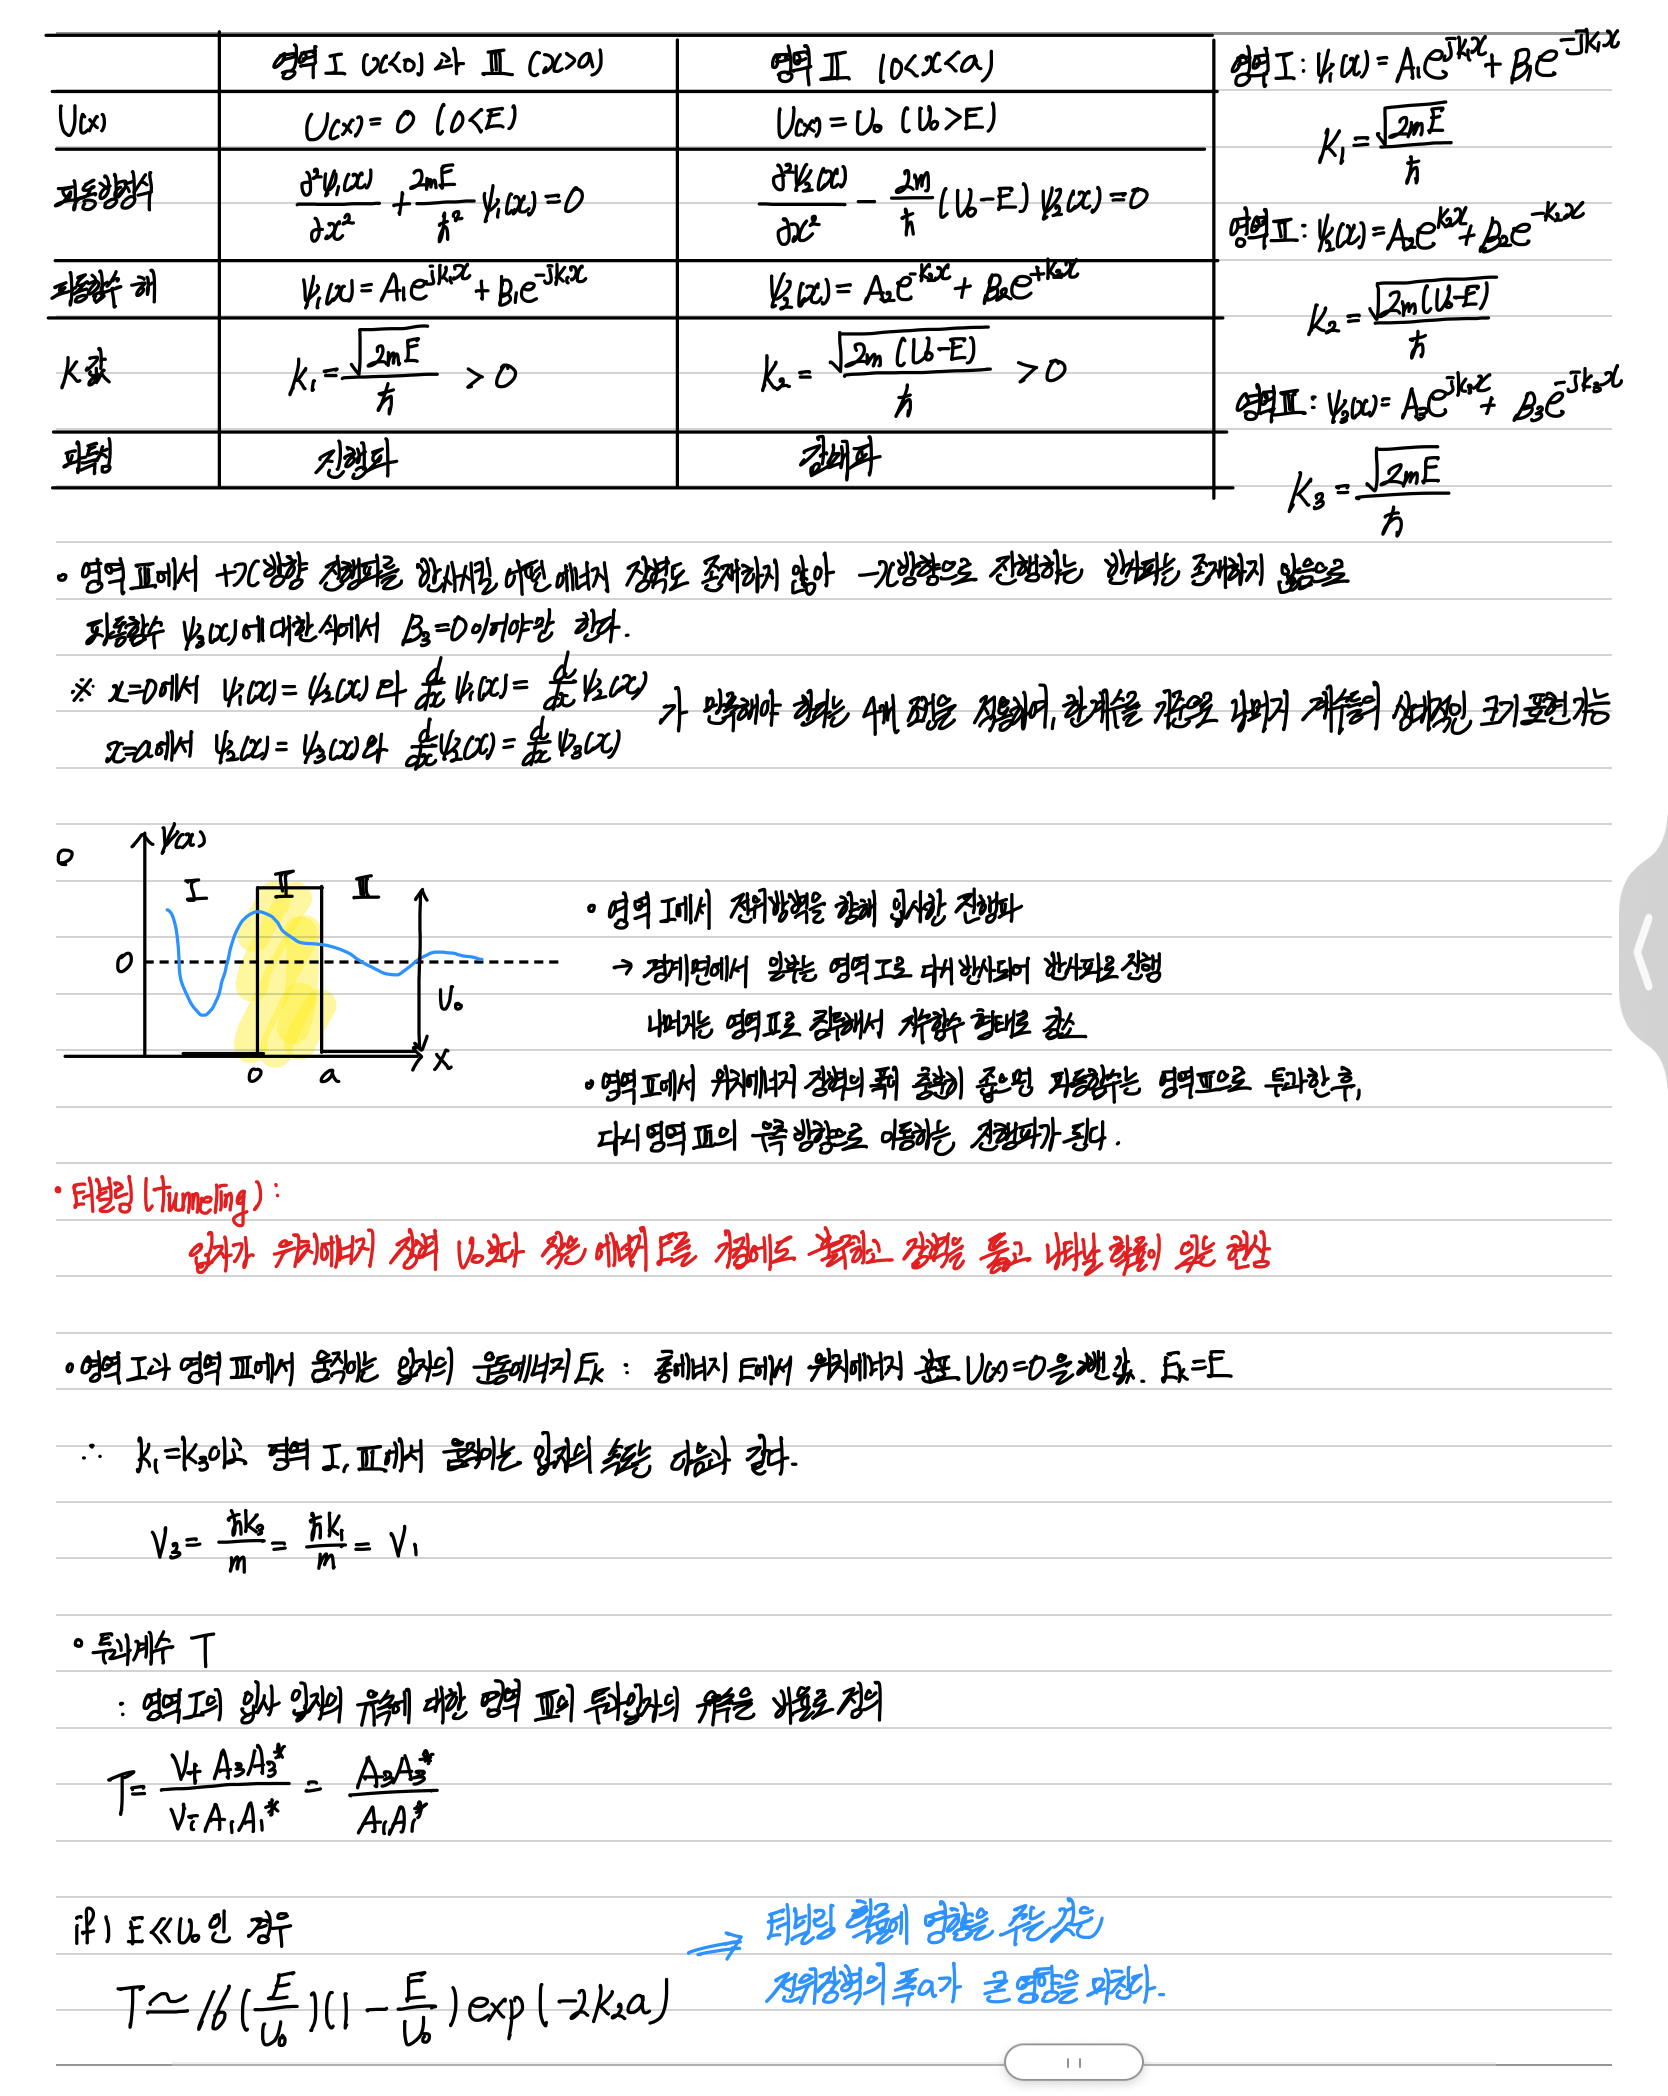 영역 I (x<0)과 III (x>a)
영역 II (0<x<a)
U(x)
U(x) = 0 (0<E)
U(x) = U₀ (U₀>E)
파동방정식
∂²ψ₁(x)/∂x² + 2mE/ħ² ψ₁(x) = 0
∂²ψ₂(x)/∂x² - 2m/ħ (U₀-E) ψ₂(x) = 0
파동함수 해
ψ₁(x) = A₁e^{jk₁x} + B₁e^{-jk₁x}
ψ₂(x) = A₂e^{-k₂x} + B₂e^{+k₂x}
K값
k₁ = √(2mE)/ħ > 0
k₂ = √(2m(U₀-E))/ħ > 0
파특성
진행파
감쇄파
영역 I : ψ₁(x) = A₁e^{jk₁x} + B₁e^{-jk₁x}
K₁ = √(2mE)/ħ
영역 II : ψ₂(x) = A₂e^{k₂x} + B₂e^{-k₂x}
K₂ = √(2m(U₀-E))/ħ
영역 III : ψ₃(x) = A₃e^{jk₃x} + B₃e^{-jk₃x}
K₃ = √(2mE)/ħ
∘ 영역 III에서 +x방향 진행파를 반사시킬 어떤 에너지 장벽도 존재하지 않아 -x방향으로 진행하는 반사파는 존재하지 않음으로
파동함수 ψ₃(x)에 대한 식에서 B₃=0 이어야만 한다.
※ x=0에서 ψ₁(x) = ψ₂(x) 와 d/dx ψ₁(x) = d/dx ψ₂(x)
x=a에서 ψ₂(x) = ψ₃(x)와 d/dx ψ₂(x) = d/dx ψ₃(x)
가 만족해야 한다는 4개 조건을 적용하여, 한계수를 기준으로 나머지 계수들의 상대적인 크기 표현가능
∘
ψ(x)
I II III
0
U₀
0 a x
∘ 영역 I에서 전위장벽을 향해 입사한 진행파
→ 경계면에서 일부는 영역 I로 다시 반사되어 반사파로 진행
나머지는 영역 II로 침투해서 지수함수 형태로 감소
∘ 영역 II에서 위치에너지 장벽의 폭이 충분히 좁으면 파동함수는 영역 III으로 투과한 후,
다시 영역 III의 우측 방향으로 이동하는 진행파가 된다.
• 터널링 (tunneling) :
입자가 위치에너지 장벽 U₀보다 작은 에너지 E를 가짐에도 불구하고 장벽을 뚫고 나타날 확률이 있는 현상
∘ 영역 I과 영역 III에서 움직이는 입자의 운동에너지 Ek : 총에너지 E에서 위치에너지 분포 U(x)=0을 뺀 값. Ek=E
∴ k₁=k₃이고 영역 I, III에서 움직이는 입자의 속도는 다음과 같다.
V₃ = ħk₃/m = ħk₁/m = V₁
∘ 투과계수 T
: 영역 I의 입사 입자의 유속에 대한 영역 III의 투과입자의 유속을 비율로 정의
T = Vt A₃A₃*/Vi A₁A₁* = A₃A₃*/A₁A₁*
if) E≪U₀인 경우
T ≃ 16(E/U₀)(1 - E/U₀) exp(-2k₂a)
⇒ 터널링 확률에 영향을 주는 것은
전위장벽의 폭 a가 큰 영향을 미친다.